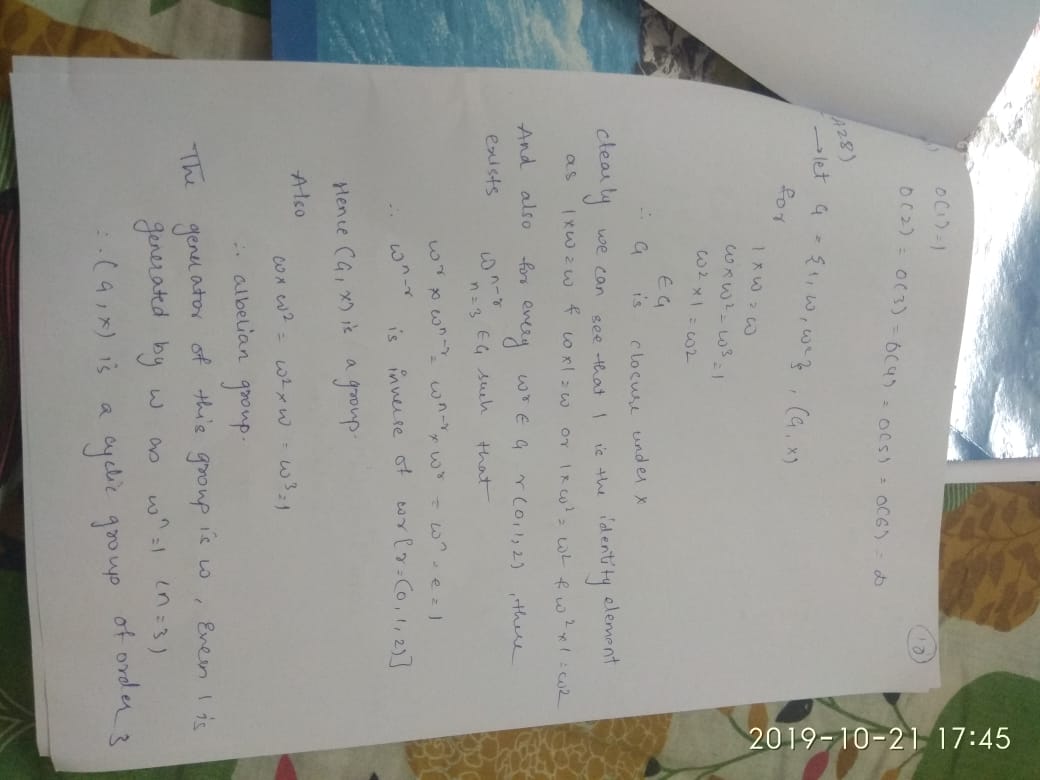 (12)
O(1)=1
O(2) = O(3) = O(4) = O(5) = O(6) = ∞
A28)
→ let G = {1, ω, ω²}, (G, ×)
for
1×ω = ω
ω×ω² = ω³ = 1
ω²×1 = ω²
∈G
∴ G is closure under ×
clearly we can see that 1 is the identity element
as 1×ω=ω & ω×1=ω or 1×ω²=ω² & ω²×1=ω²
And also for every ω^r ∈ G r(0,1,2), there
exists ω^n-r ∈G such that
n=3
ω^r × ω^n-r = ω^n-r × ω^r = ω^n = e = 1
∴ ω^n-r is inverse of ω^r [r=(0,1,2)]
Hence (G, ×) is a group.
Also
ω×ω² = ω²×ω = ω³=1
∴ albelian group.
The generator of this group is ω, Even 1 is
generated by ω as ω^n=1 (n=3)
∴ (G, ×) is a cyclic group of order 3
2019-10-21 17:45